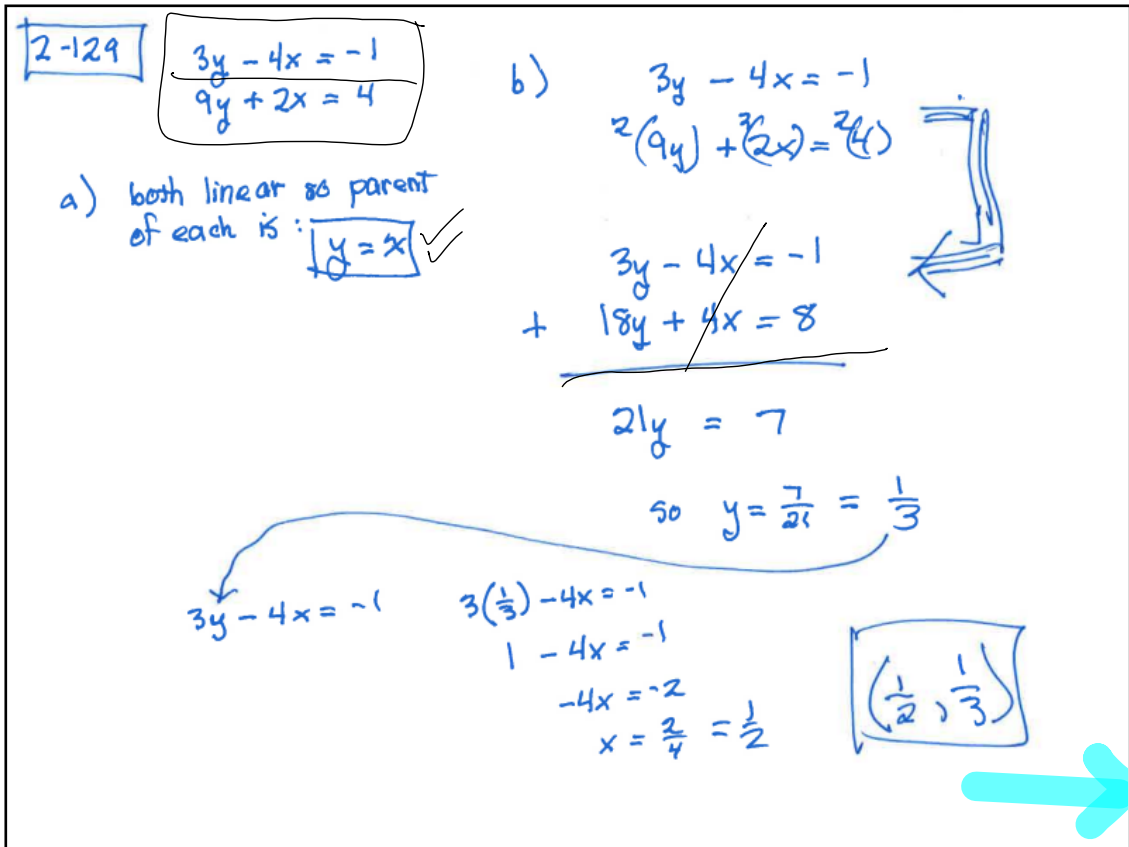 2-129
3y - 4x = -1
9y + 2x = 4
a) both linear so parent
of each is : y = x
b) 3y - 4x = -1
2(9y) + 2(2x) = 2(4)
3y - 4x = -1
+ 18y + 4x = 8
21y = 7
so y = 7/21 = 1/3
3y - 4x = -1
3(1/3) - 4x = -1
1 - 4x = -1
-4x = -2
x = 2/4 = 1/2
(1/2, 1/3)